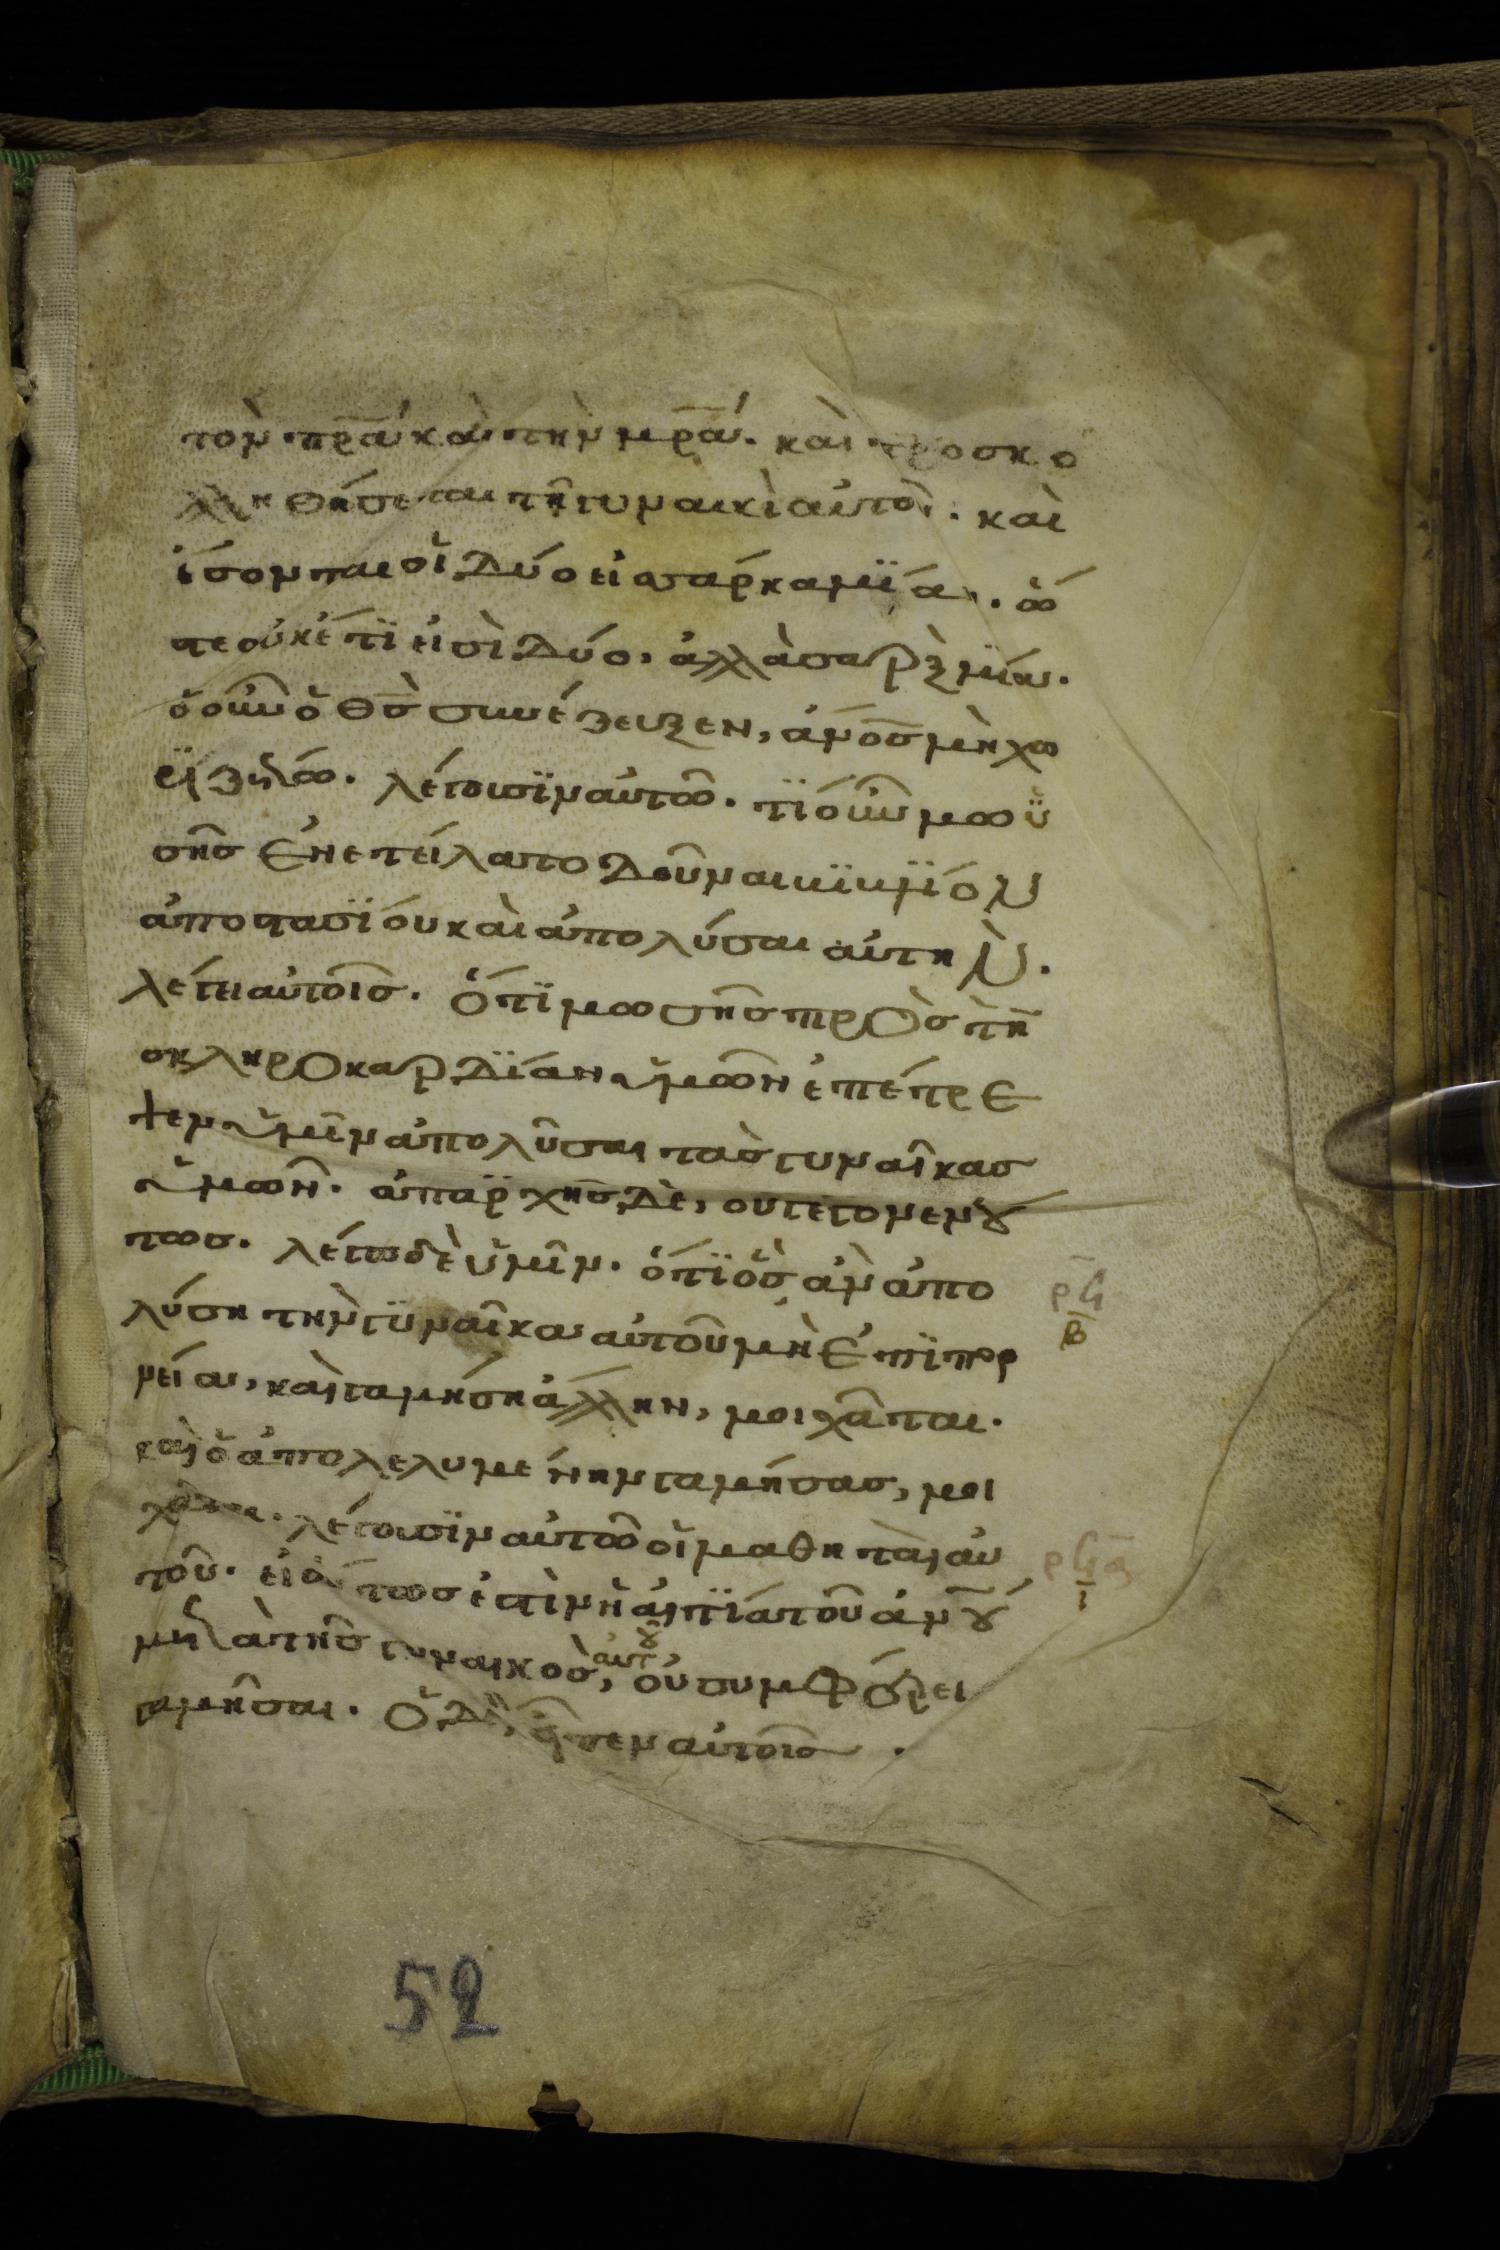 τὸν πρ̅α καὶ τὴν μρ̅α. καὶ προσκο
λληθήσεται τῆ γυναικὶ αὐτοῦ. καὶ
ἔσονται οἱ δύο εἰς σάρκα μΐαν. ὥ
στε οὐκέτϊ εἰσὶ δύο, ἀλλὰ σαρξ μΐα.
ὃ οὖν ὁ θς̅ συνέζευξεν, ἀν̅ος μὴ χω
ρϊζέτω. λέγουσϊν αὐτῶ. τΐ οὖν μωϋ
σῆς ἐνετείλατο δοῦναι βϊβλΐον
ἀποστασΐου καὶ ἀπολύσαι αὐτὴν.
λέγει αὐτοῖς. ὅτϊ μωσῆς πρὸς τὴ̅
σκληροκαρδΐαν ὑμῶν ἐπέτρε
ψεν ὑμῖν ἀπολῦσαι τὰς γυναῖκας
ὑμῶν. ἀπαρχῆς δὲ, ου γέγονεν ȣ́
τως. λέγω δὲ ὑμῖν. ὅτϊ ὃς ἀν ἀπο
λύση τὴν γϋναῖκα αὐτοῦ μὴ ἐπῒ πορ
νεία, καὶ γαμήση ἄλλην, μοιχᾶται.
καὶ ὁ ἀπολελυμένην γαμήσας, μοι
χᾶται. λέγουσϊν αὐτῶ οἱ μαθηταὶ αὐ
τοῦ. εἰ οὕτως ἐστὶν ἡ αἰτΐα τοῦ ἀν̅ȣ
μετὰ τῆς γυναικὸς αὐτȣ͂, οὐ συμφέρει
γαμῆσαι. ὁ δὲ εἶπεν αὐτοῖς.
ρϟ̅
β
ρϟα̅
ι
52